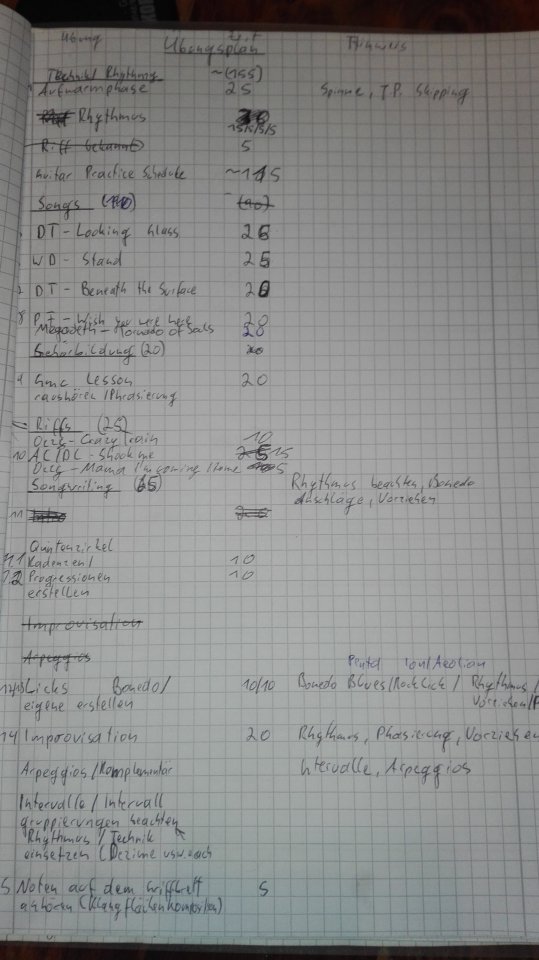 Übung Zeit Hinweis
Übungsplan
Technik/Rhythmus ~(155)
Aufwärmphase 25 Spinne, T.P. Skipping
Rhythmus
15/5/5/5
Riff bekannt 5
Guitar Practice Schedule ~115
Songs (90)
DT - Looking Glass 25
WD - Stand 25
DT - Beneath the Surface 20
8 P.F - Wish you were here 20
Megadeth - Tornado of Souls 20
Gehörbildung (20)
9 GMC Lesson 20
raushören/Phrasierung
Riffs (25)
Ozzy - Crazy train 10
10 AC/DC - Shook me 15
Ozzy - Mama I'm coming Home 5
Songwriting (65) Rhythmus beachten, Bonedo
Anschläge, Vorziehen
11 Intro
Quintenzirkel
Kadenzen/ 10
12 Progressionen 10
erstellen
Improvisation
Arpeggios
Penta Ion/Aeolian
Licks Bonedo/ 10/10 Bonedo Blues/Rocklick/ Rhythmus/
eigene erstellen Vorziehen/
14 Improvisation 20 Rhythmus, Phasierung, Vorziehen
Arpeggios/Komplementär Intervalle, Arpeggios
Intervalle/Intervall
gruppierungen beachten
Rhythmus/Technik
einsetzen (Dezime usw. auch
5 Noten auf dem Griffbrett 5
anhören (Klangflächenkomposition)